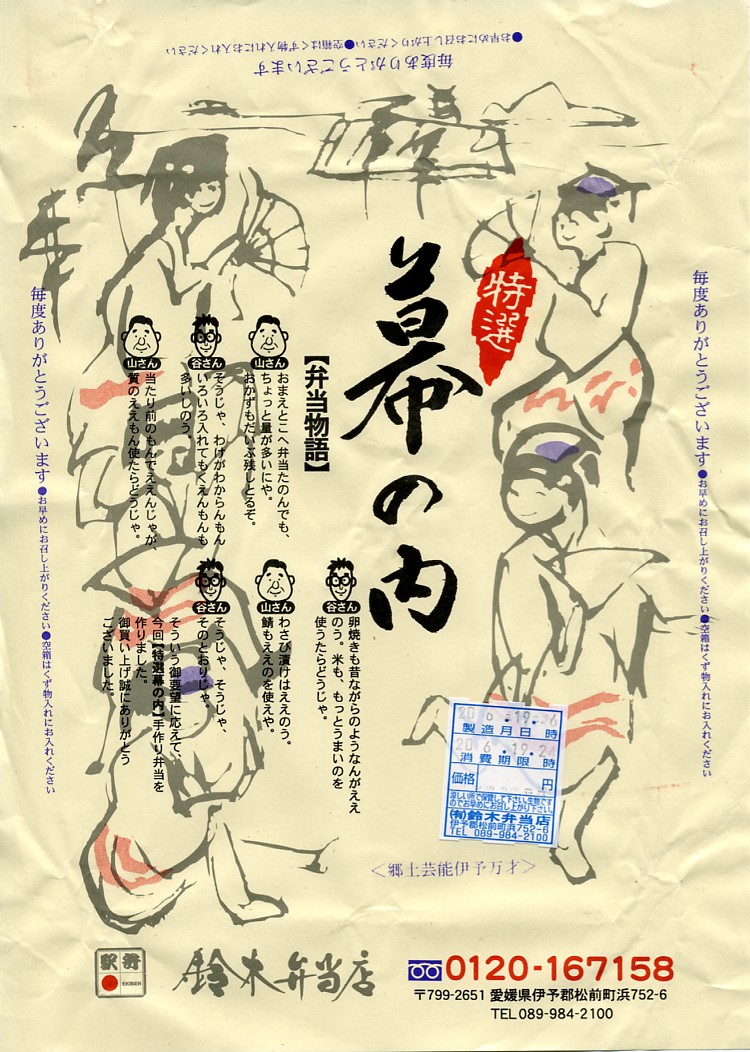 ●お早めにお召し上がりください●空箱はくず物入れにお入れください
毎度ありがとうございます
特選
幕の内
【弁当物語】
山さん
おまえとこへ弁当たのんでも、
ちょっと量が多いにや。
おかずもだいぶ残しとるぞ。
谷さん
そうじゃ、わけがわからんもん
いろいろ入れてもくえんもんも
多いしのう。
山さん
当たり前のもんでええんじゃが、
質のええもん使たらどうじゃ。
谷さん
卵焼きも昔ながらのようなんがええ
のう。米も、もっとうまいのを
使うたらどうじゃ。
山さん
わさび漬けはええのう。
鯖もええのを使えや。
谷さん
そうじゃ、そうじゃ、
そのとおりじゃ。
そういう御要望に応えて、
今回【特選幕の内】手作り弁当を
作りました。
御買い上げ誠にありがとう
ございました。
毎度ありがとうございます●お早めにお召し上がりください●空箱はくず物入れにお入れください
毎度ありがとうございます●お早めにお召し上がりください●空箱はくず物入れにお入れください
製造月日時
消費期限時
価格 円
涼しい所で保管して下さい。生物です
のでお早めにお召し上り下さい。
(有)鈴木弁当店
伊予郡松前町浜752-6
TEL 089-984-2100
<郷土芸能伊予万才>
駅弁
EKIBEN
鈴木弁当店
0120-167158
〒799-2651 愛媛県伊予郡松前町浜752-6
TEL 089-984-2100